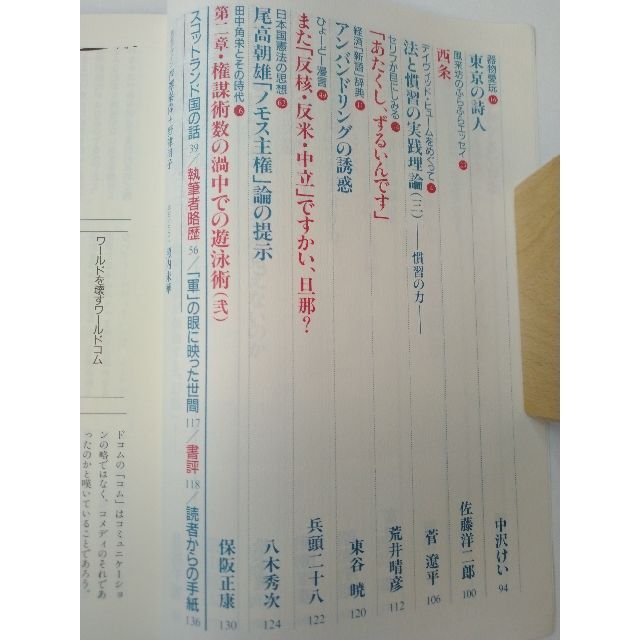 器物愛玩
東京の詩人
中沢けい 94
風来坊のふらふらエッセイ
西条
佐藤洋二郎 100
デイヴィッド・ヒュームをめぐって
法と慣習の実践理論(三)——慣習の力——
菅 遼平 106
セリフが目にしみる
「あたくし、ずるいんです」
荒井晴彦 112
経済「新語」辞典
アンバンドリングの誘惑
東谷 暁 120
ひょーどー漫言
また「反核・反米・中立」ですかい、旦那?
兵頭二十八 122
日本国憲法の思想
尾高朝雄「ノモス主権」論の提示
八木秀次 124
田中角栄とその時代
第二章・権謀術数の渦中での遊泳術(弐)
保阪正康 130
スコットランド国の話 39/執筆者略歴 56/「軍」の眼に映った世間 117/書評 118/読者からの手紙 136
ワールドを壊すワールドコム
ドコムの「コム」はコミュニケーショ
ンの略ではなく、コメディのそれであ
ったのかと嘆いていることであろう。